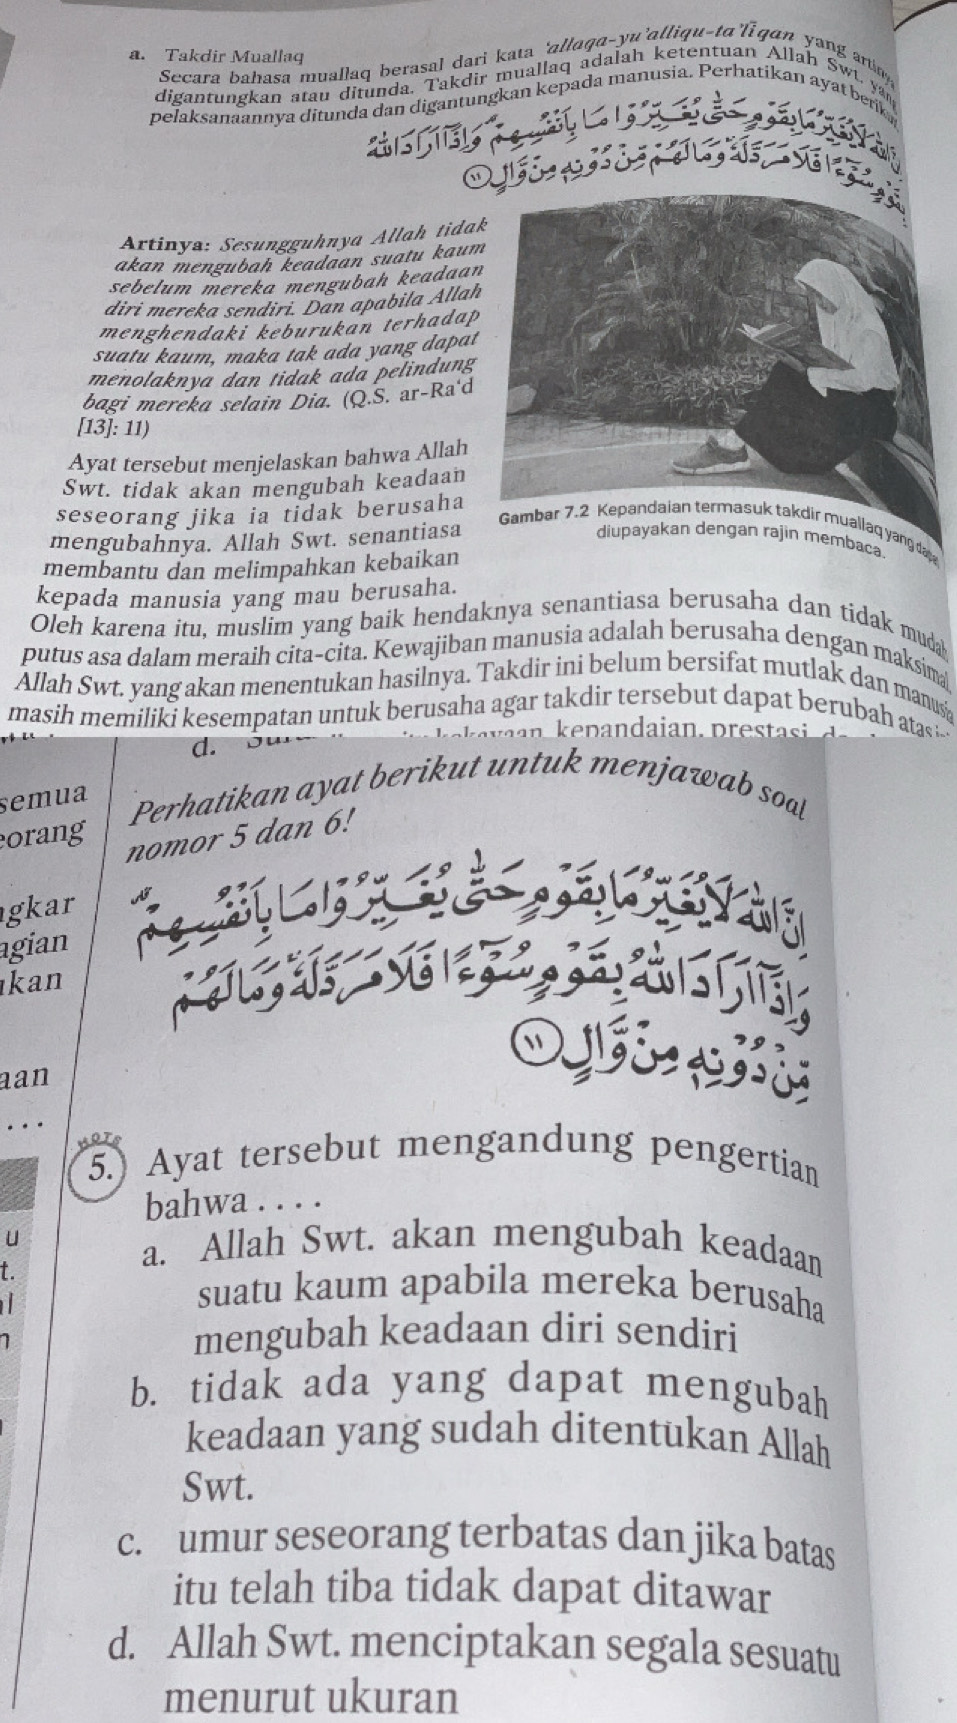 a. Takdir Muallaq
Secara bahasa muallaq berasal dari kata 'allaqa-yu'alliqu-ta'līqan yang artinya
digantungkan atau ditunda. Takdir muallaq adalah ketentuan Allah Swt. yang
pelaksanaannya ditunda dan digantungkan kepada manusia. Perhatikan ayat berikut
اللّٰهَ لَا يُغَيِّرُ مَا بِقَوْمٍ حَتّٰى يُغَيِّرُوْا مَا بِاَنْفُسِهِمْۗ وَاِذَآ اَرَادَ اللّٰهُ
بِقَوْمٍ سُوْۤءًا فَلَا مَرَدَّ لَهٗۚ وَمَا لَهُمْ مِّنْ دُوْنِهٖ مِنْ وَّالٍ ١١
Artinya: Sesungguhnya Allah tidak
akan mengubah keadaan suatu kaum
sebelum mereka mengubah keadaan
diri mereka sendiri. Dan apabila Allah
menghendaki keburukan terhadap
suatu kaum, maka tak ada yang dapat
menolaknya dan tidak ada pelindung
bagi mereka selain Dia. (Q.S. ar-Ra'd
[13]: 11)
Ayat tersebut menjelaskan bahwa Allah
Swt. tidak akan mengubah keadaan
seseorang jika ia tidak berusaha
mengubahnya. Allah Swt. senantiasa
membantu dan melimpahkan kebaikan
kepada manusia yang mau berusaha.
Gambar 7.2 Kepandaian termasuk takdir muallaq yang dapat
diupayakan dengan rajin membaca.
Oleh karena itu, muslim yang baik hendaknya senantiasa berusaha dan tidak mudah
putus asa dalam meraih cita-cita. Kewajiban manusia adalah berusaha dengan maksimal.
Allah Swt. yang akan menentukan hasilnya. Takdir ini belum bersifat mutlak dan manusia
masih memiliki kesempatan untuk berusaha agar takdir tersebut dapat berubah atas
kepandaian, prestasi
d.
semua
eorang
ngkar
agian
kan
aan
. . .
u
t.
Perhatikan ayat berikut untuk menjawab soal
nomor 5 dan 6!
اِنَّ اللّٰهَ لَا يُغَيِّرُ مَا بِقَوْمٍ حَتّٰى يُغَيِّرُوْا مَا بِاَنْفُسِهِمْۗ
وَاِذَآ اَرَادَ اللّٰهُ بِقَوْمٍ سُوْۤءًا فَلَا مَرَدَّ لَهٗۚ وَمَا لَهُمْ
مِّنْ دُوْنِهٖ مِنْ وَّالٍ ١١
HOTS
5. Ayat tersebut mengandung pengertian
bahwa . . . .
a. Allah Swt. akan mengubah keadaan
suatu kaum apabila mereka berusaha
mengubah keadaan diri sendiri
b. tidak ada yang dapat mengubah
keadaan yang sudah ditentukan Allah
Swt.
c. umur seseorang terbatas dan jika batas
itu telah tiba tidak dapat ditawar
d. Allah Swt. menciptakan segala sesuatu
menurut ukuran